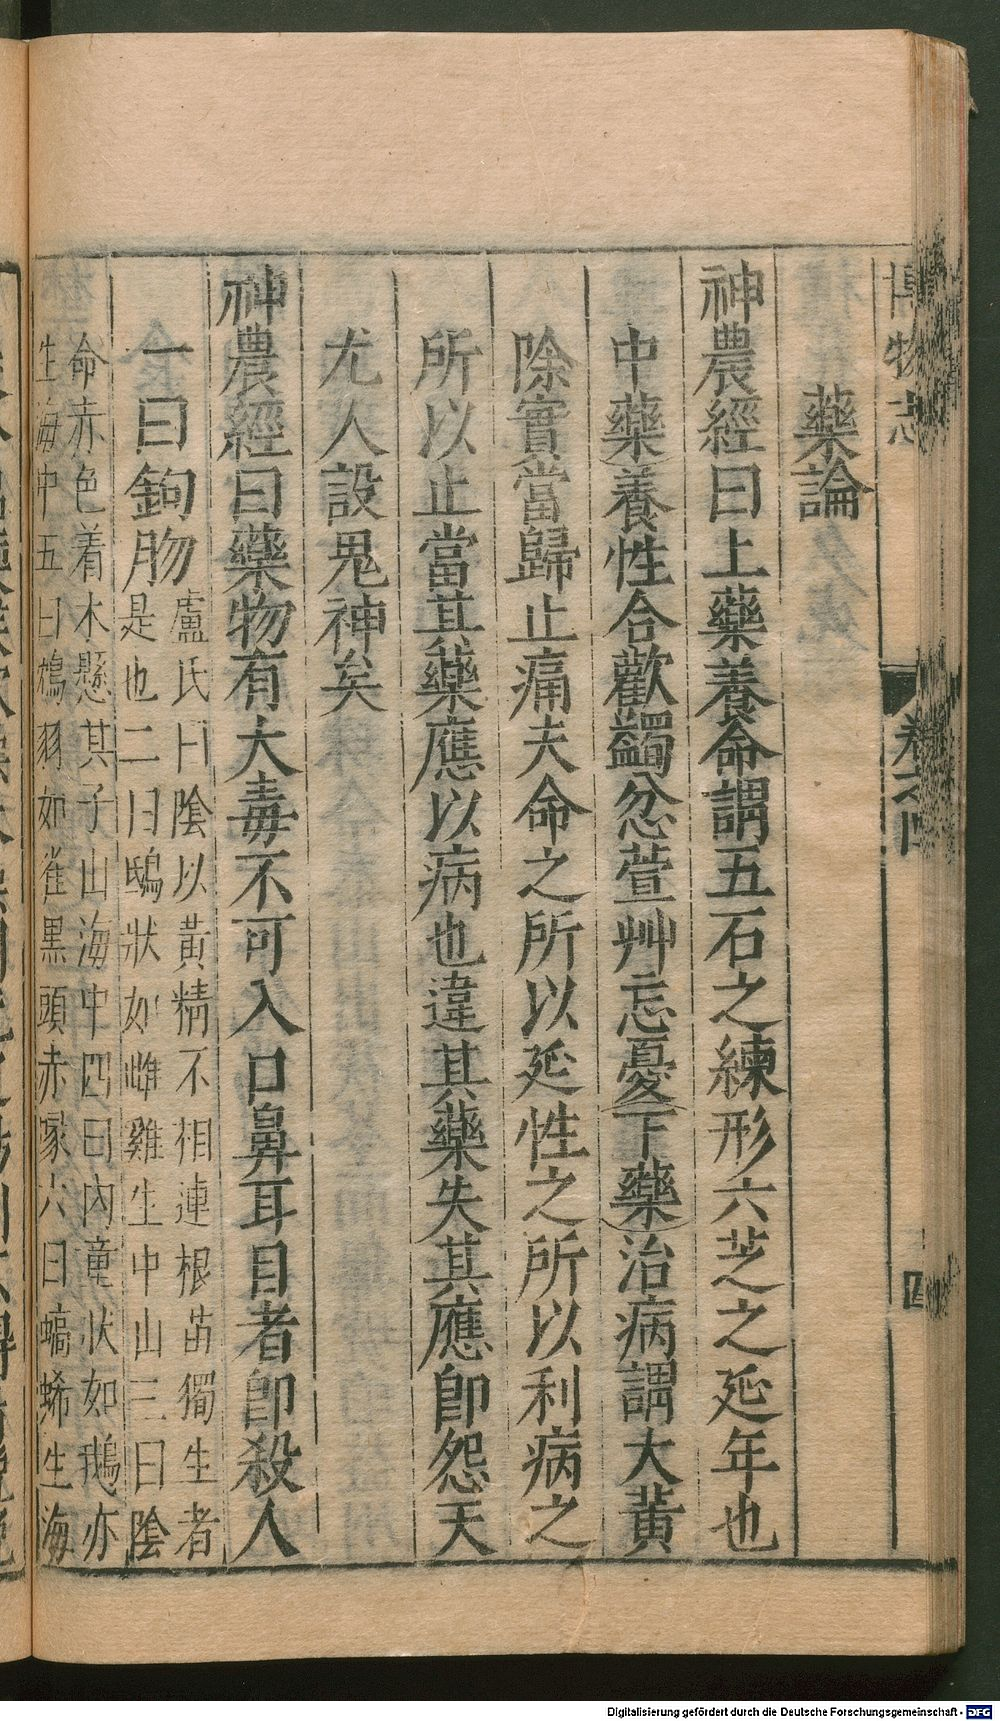 博物志
卷之四
四
藥論
神農經曰上藥養命謂五石之練形六芝之延年也
中藥養性合歡蠲忿萱艸忘憂下藥治病謂大黃
除實當歸止痛夫命之所以延性之所以利病之
所以止當其藥應以病也違其藥失其應卽怨天
尤人設鬼神矣
神農經曰藥物有大毒不可入口鼻耳目者卽殺人
一曰鉤吻
盧氏曰陰以黃精不相連根苗獨生者
是也二曰鴟狀如雌雞生中山三曰陰
命赤色着木懸其子山海中四曰內童狀如鵝亦
生海中五曰鴆羽如雀黑頭赤喙六曰蝙蛛生海
Digitalisierung gefördert durch die Deutsche Forschungsgemeinschaft - DFG